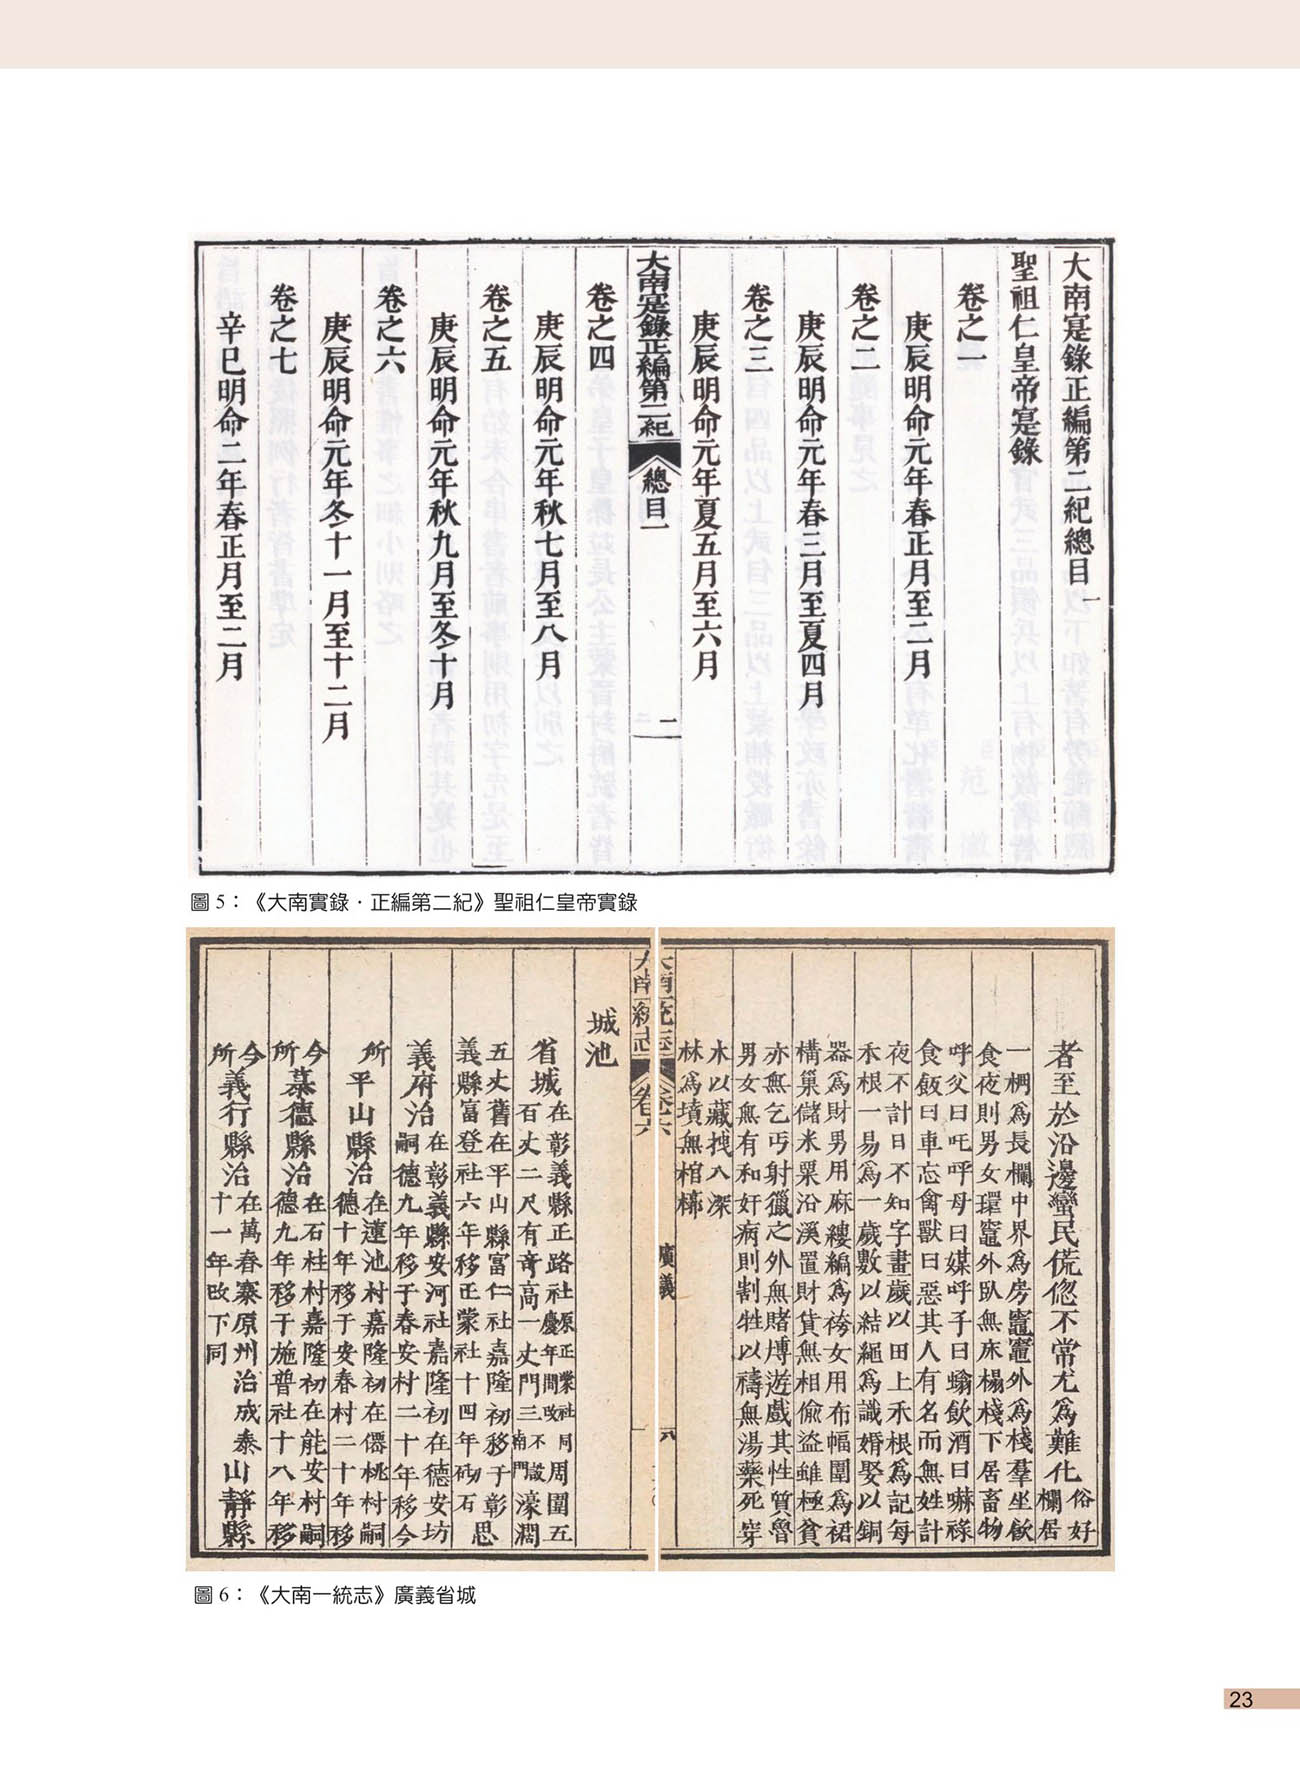 大南寔錄正編第二紀總目一
聖祖仁皇帝寔錄
卷之一
庚辰明命元年春正月至二月
卷之二
庚辰明命元年春三月至夏四月
卷之三
庚辰明命元年夏五月至六月
大南寔錄正編第二紀 總目一 一
卷之四
庚辰明命元年秋七月至八月
卷之五
庚辰明命元年秋九月至冬十月
卷之六
庚辰明命元年冬十一月至十二月
卷之七
辛巳明命二年春正月至二月
圖 5：《大南實錄．正編第二紀》聖祖仁皇帝實錄
者至於沿邊蠻民慌惚不常尤爲難化
俗好
欄居
一棚爲長欄中界爲房竈竈外爲棧羣坐飲
食夜則男女環竈外臥無床榻棧下居畜物
呼父曰吒呼母曰媒呼子曰螉飲酒曰嚇祿
食飯曰車忘禽獸曰惡其人有名而無姓計
夜不計日不知字畫歲以田上禾根爲記每
禾根一易爲一歲數以結繩爲識婚娶以銅
器爲財男用麻縷編爲袴女用布幅圍爲裙
構巢儲米粟沿溪置財貨無相偸盜雖極貧
亦無乞丐射獵之外無賭博遊戲其性質魯
男女無有和奸病則割牲以禱無湯藥死穿
木以藏拽八深
林爲墳無棺槨
大南一統志 卷六 廣義 六
城池
省城
在彰義縣正路社
原正蒙社同
慶年間改
周圍五
百丈二尺有奇高一丈門三
不設
南門
濠濶
五丈舊在平山縣富仁社嘉隆初移于彰
義縣富登社六年移正蒙社十四年砌石
思義府治
在彰義縣安河社嘉隆初在德安坊
嗣德九年移于春安村二十年移今
所
平山縣治
在蓮池村嘉隆初在僊桃村嗣
德十年移于安春村二十年移
今所
慕德縣治
在石柱村嘉隆初在能安村嗣
德九年移于施普社十八年移
今所
義行縣治
在萬春寨原州治成泰
十一年改下同
山靜縣
圖 6：《大南一統志》廣義省城
23